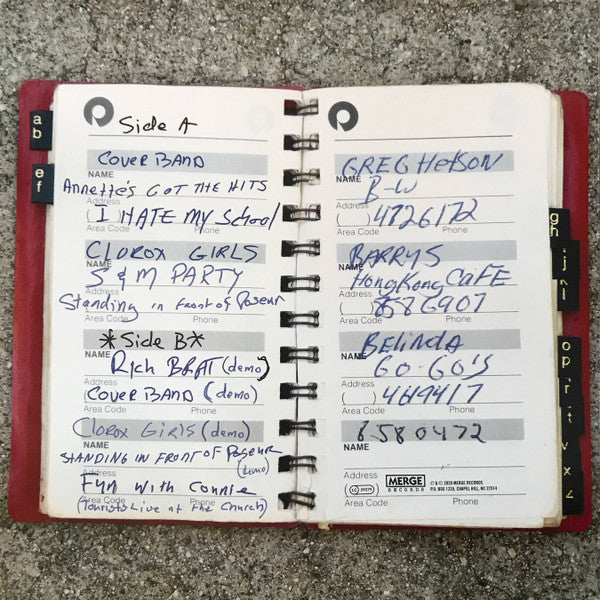 a
b
e
f
Side A
COVER BAND
Annette's GOT THE HITS
Address
( ) I HATE My School
Area Code Phone
CLOROX GIRLS
NAME
S & M PARTY
Address
Standing in Front of Poseur
Area Code Phone
*Side B*
NAME
Rich BRAT (demo)
Address
COVER BAND (demo)
Area Code Phone
Clorox Girls (demo)
NAME
STANDING IN FRONT OF Poseur
(demo)
Address
Fun with Connie
Area Code Phone
(Tourists Live at the Church)
GREG HETSON
NAME
B-W
Address
( ) 4726172
Area Code Phone
BARRYS
NAME
HongKong CaFE
Address
( ) 8586907
Area Code Phone
BELINDA
NAME
GO-GO'S
Address
( ) 4619417
Area Code Phone
6580472
NAME
Address
MERGE
RECORDS
℗ & © 2020 MERGE RECORDS
P.O. BOX 1235, CHAPEL HILL, NC 27514
Area Code Phone
g
h
i
j
o
p
r
t
v
x
z